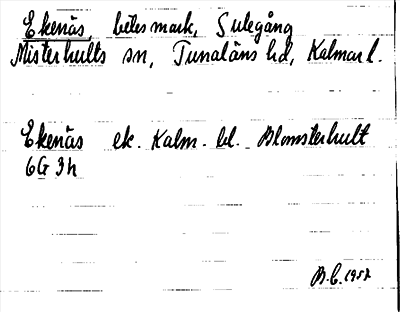 Ekenäs, betesmark, Sulegång
Misterhults sn, Tunaläns hd, Kalmar l.
Ekenäs ek. Kalm. bl. Blomsterhult
6G 3h
B.C. 1957